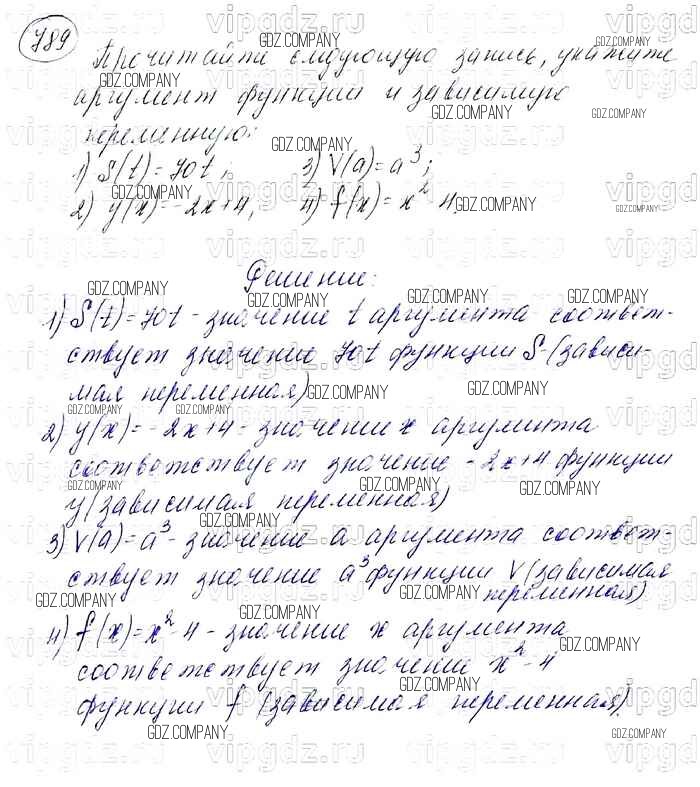 789
Прочитайте следующую запись, укажите
аргумент функции и зависимую
переменную:
1) S(t)=70t; 3) V(a)=a³;
2) y(x)=-2x+4; 4) f(x)=x²-4.
Решение:
1) S(t)=70t - значение t аргумента соответ-
ствует значение 70t функции S-(зависи-
мая переменная)
2) y(x)=-2x+4 - значении x аргумента
соответствует значение -2x+4 функции
y(зависимая переменная)
3) V(a)=a³- значение a аргумента соответ-
ствует значение a³ функции V(зависимая
переменная)
4) f(x)=x²-4 - значение x аргумента
соответствует значение x²-4
функции f (зависимая переменная).
GDZ.COMPANY
vipgdz.ru